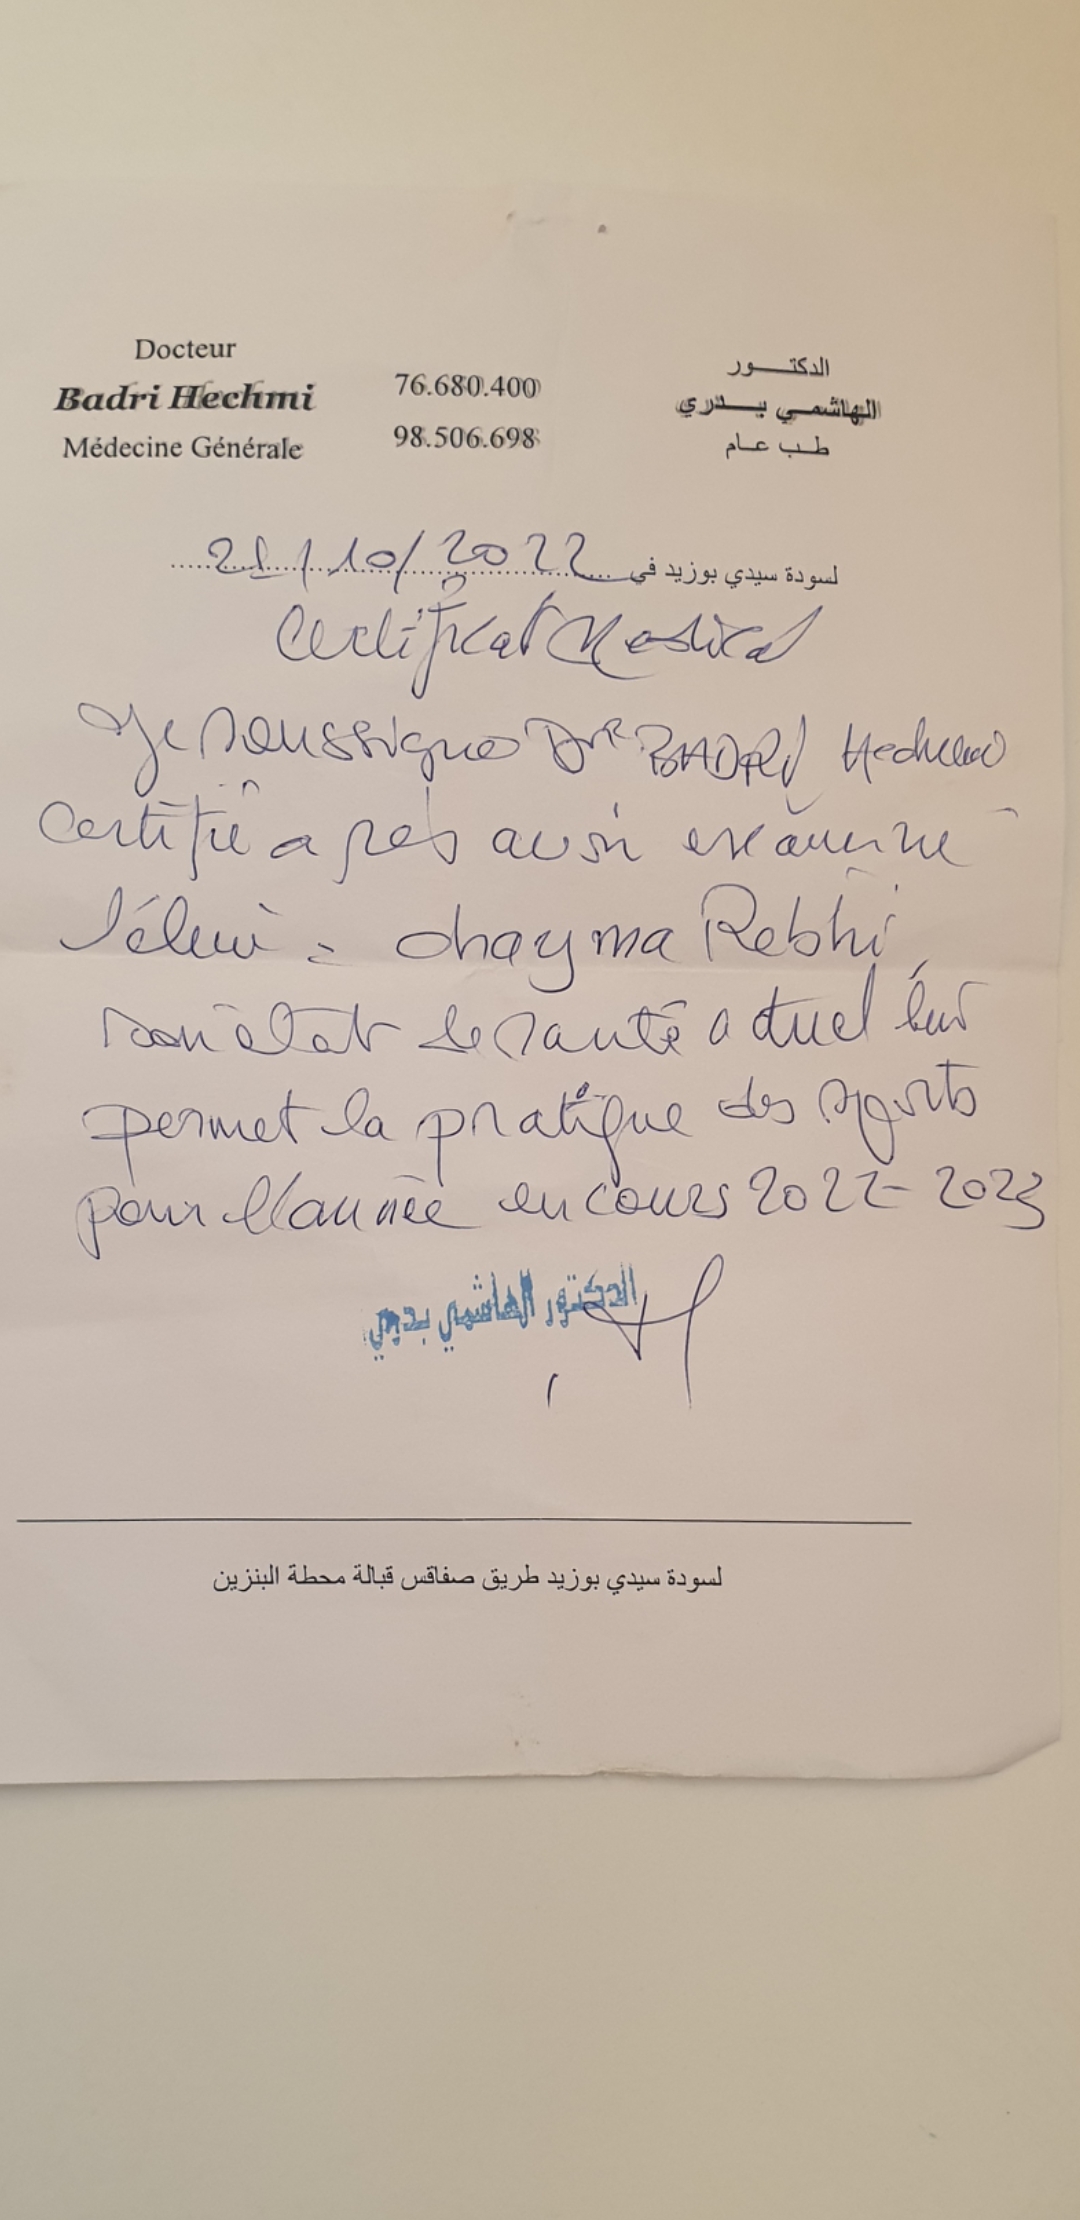 Docteur
Badri Hechmi
Médecine Générale
76.680.400
98.506.698
الدكتور
الهاشمي بدري
طب عام
لسودة سيدي بوزيد في 21/10/2022
Certificat Medical
Je soussigne Dr BADRI Hechmi
certifie après avoir examiné
l'élève : chayma Rebhi
son état de santé actuel lui
permet la pratique des sports
pour l'année en cours 2022-2023
الدكتور الهاشمي بدري
لسودة سيدي بوزيد طريق صفاقس قبالة محطة البنزين